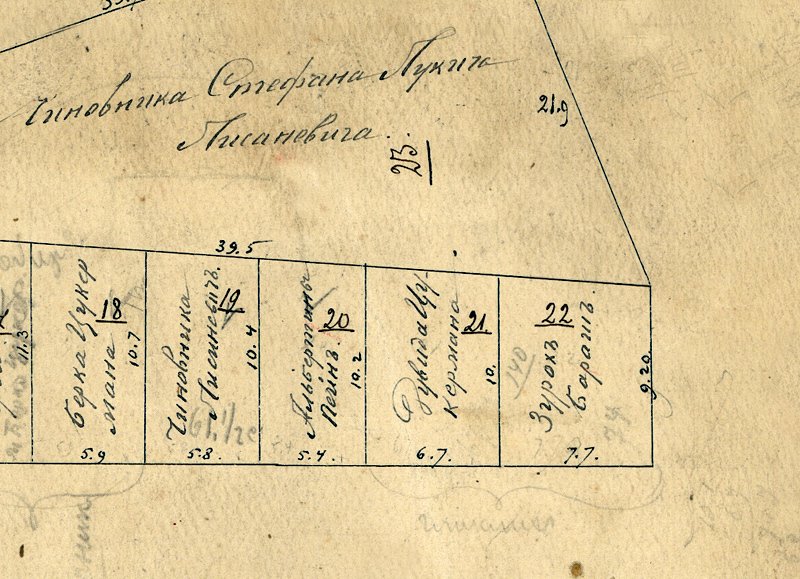 Чиновника Стефана Лукича
Лисаневича.
23
21.9
39.5
11.3
18
Берка Цукер
мана
10.7
5.9
19
Чиновника
10.4
5.8
20
Альбертины
10.2
5.4
21
Дувида Цу-
кермана
10.
6.7.
22
Зурохъ
Барашъ.
9.20.
7.7.
140